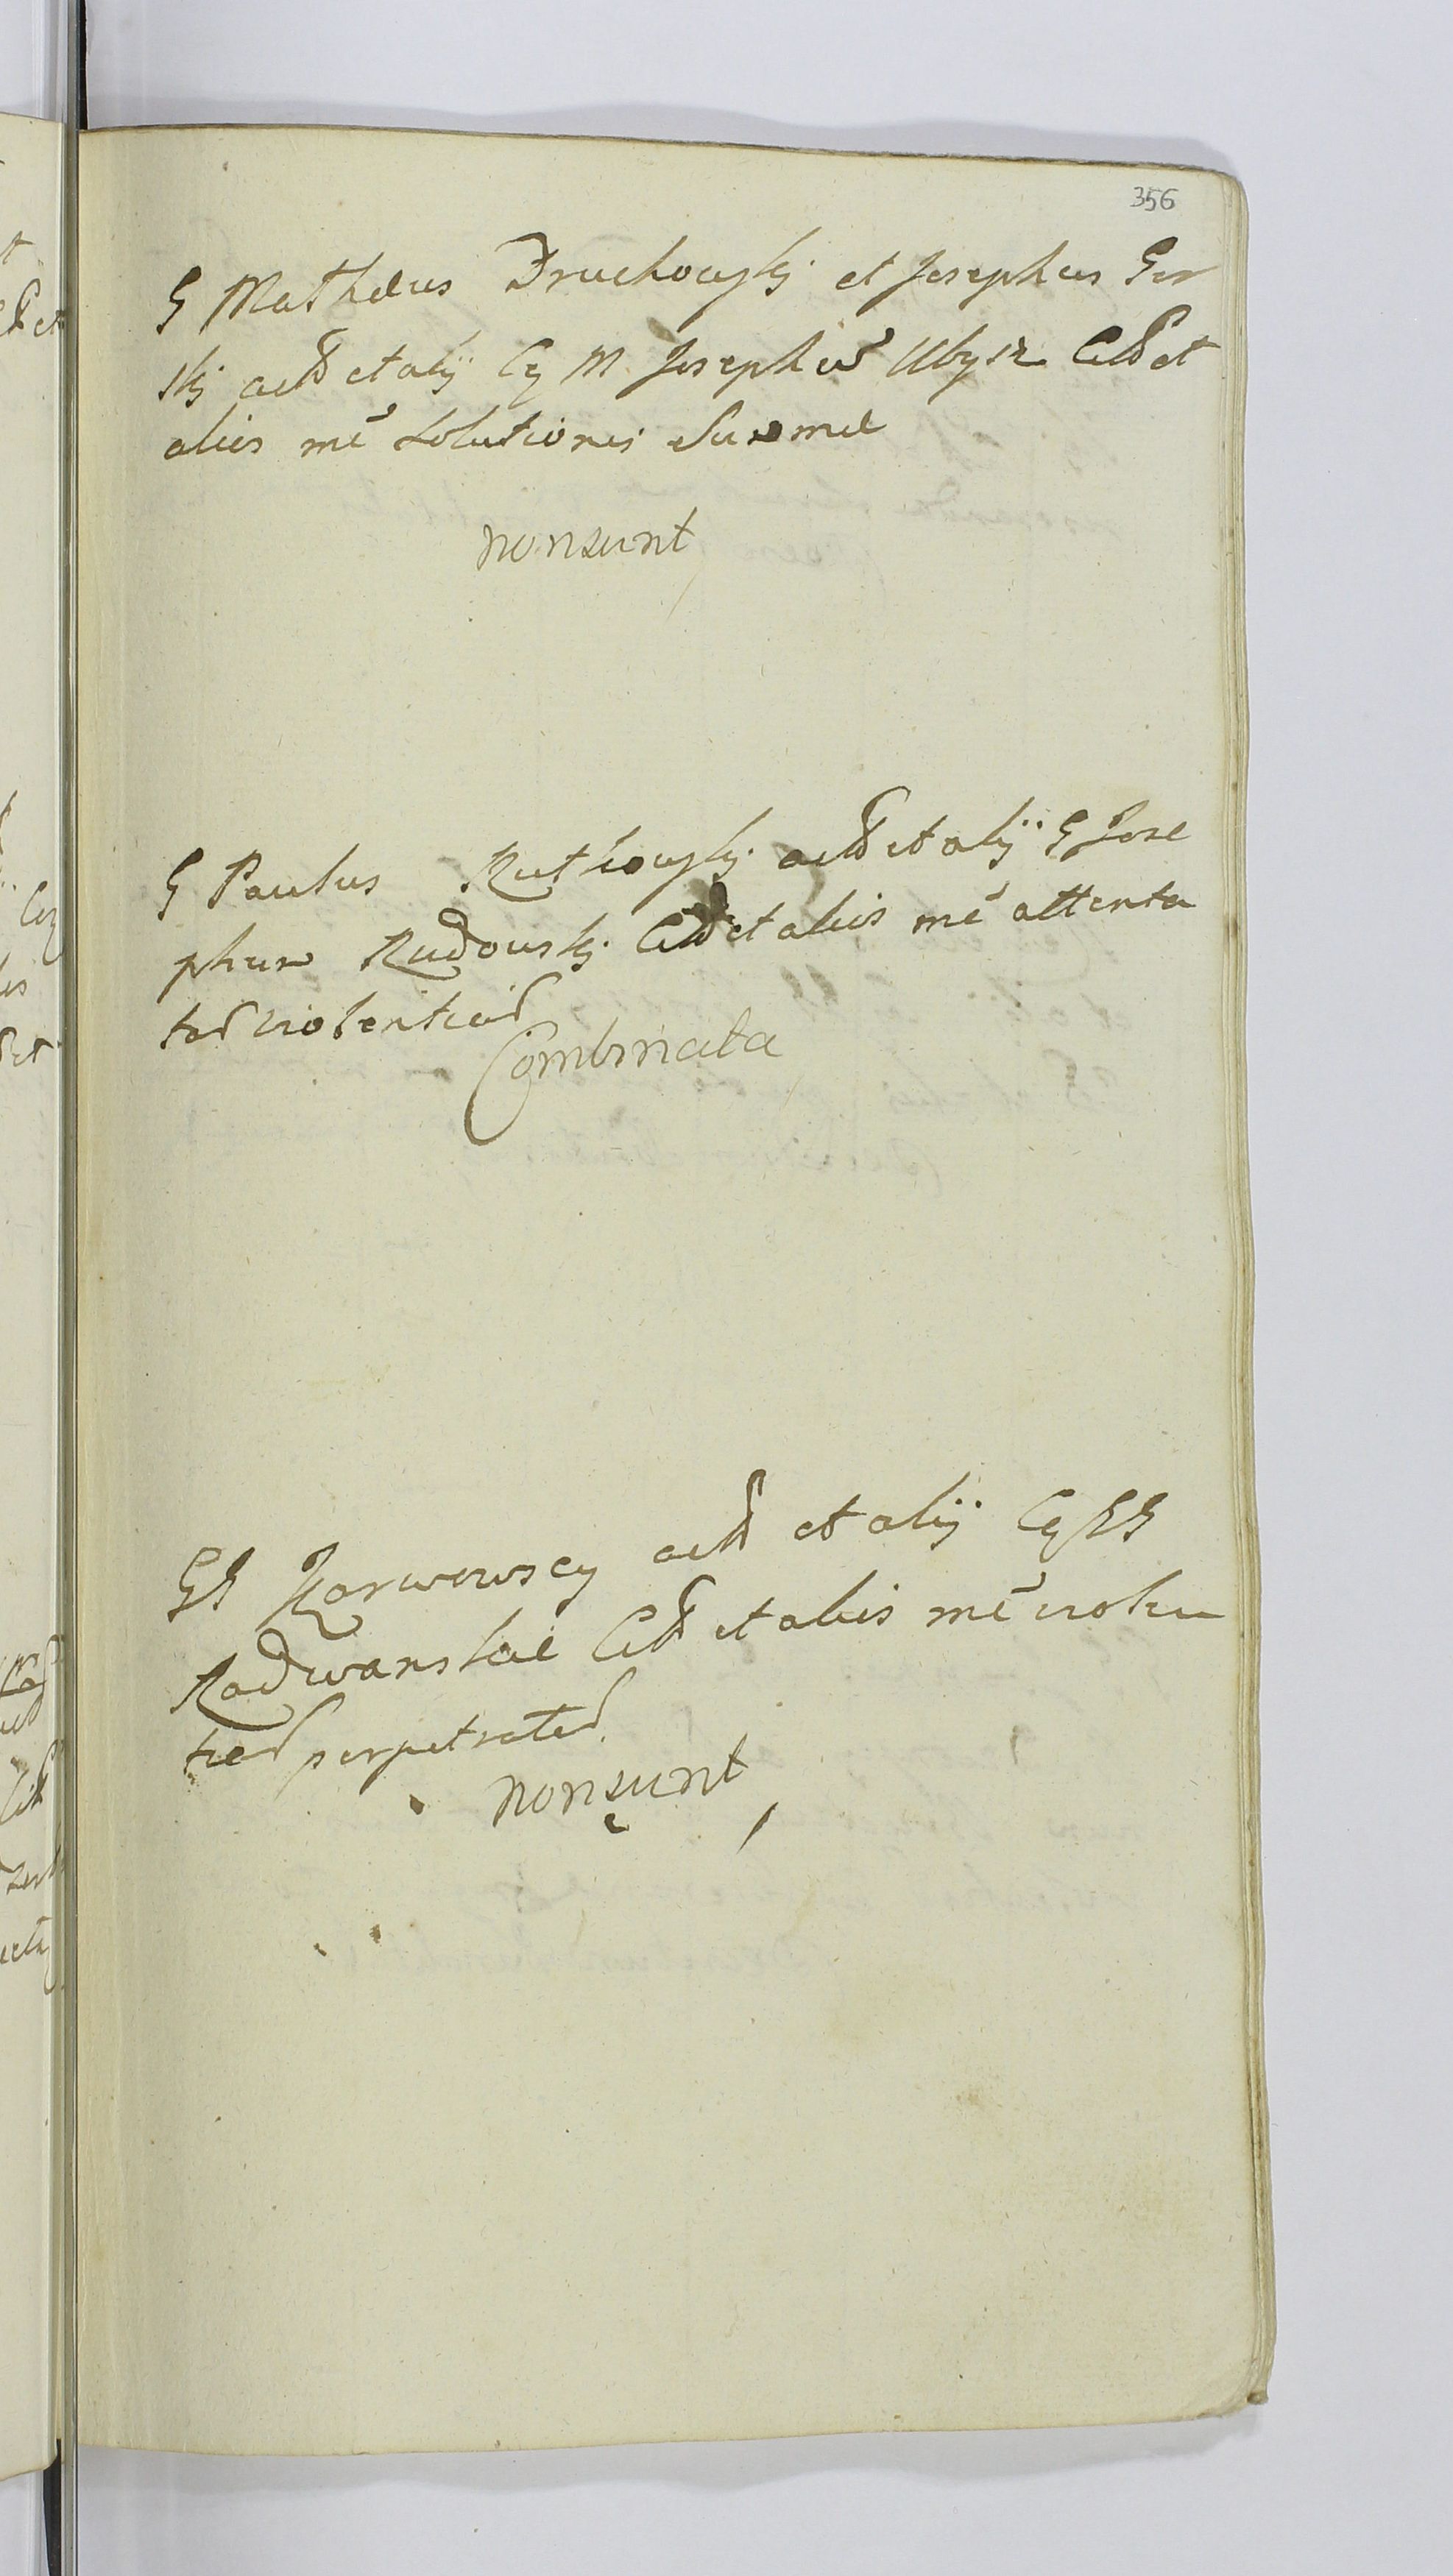 356
G Mathaeus Druchowskj et Josephus Gor
skj actt et alij Cq M Josephū Ubysz Citt et
alios mē solutionis Summae
non sunt
G Paulus Rutkowskj actt et alij G Jose
phum Rudowskj Citt et alios mē attenta
violentiar
Combinata
GG Karwowscy actt et alij Cq GG
Radwanskie Citt et alios mē violen
tiar perpetratar
non sunt